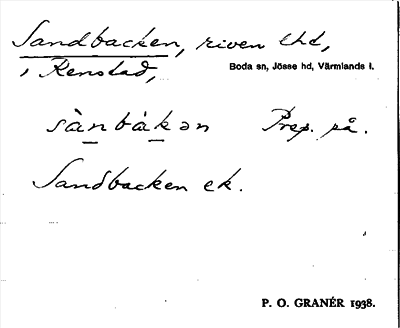 Sandbacken, riven lhd,
i Renstad,
Boda sn, Jösse hd, Värmlands l.
sànbákən Prep. på.
Sandbacken ek.
P. O. GRANÉR 1938.